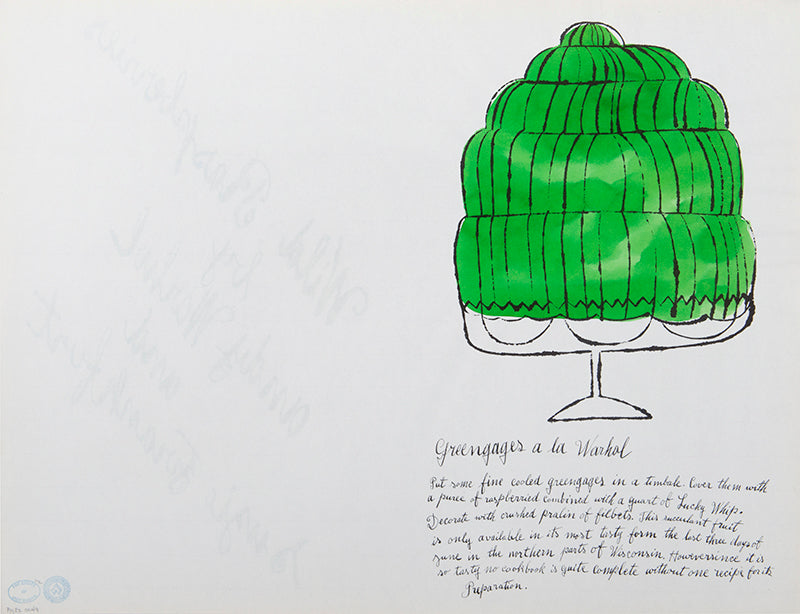 Greengages a la Warhol
Put some fine cooled greengages in a timbale. Cover them with
a puree of raspberried combined with a quart of Lucky Whip.
Decorate with crushed pralin of filbets. This succulant fruit
is only available in its most tasty form the last three days of
June in the northern parts of Wisconsin. Howeversince it is
so tasty no cookbook is quite complete without one recipe for its
Preparation.
Wild Raspberries
by
andy Warhol
and
Suzie Frankfurt